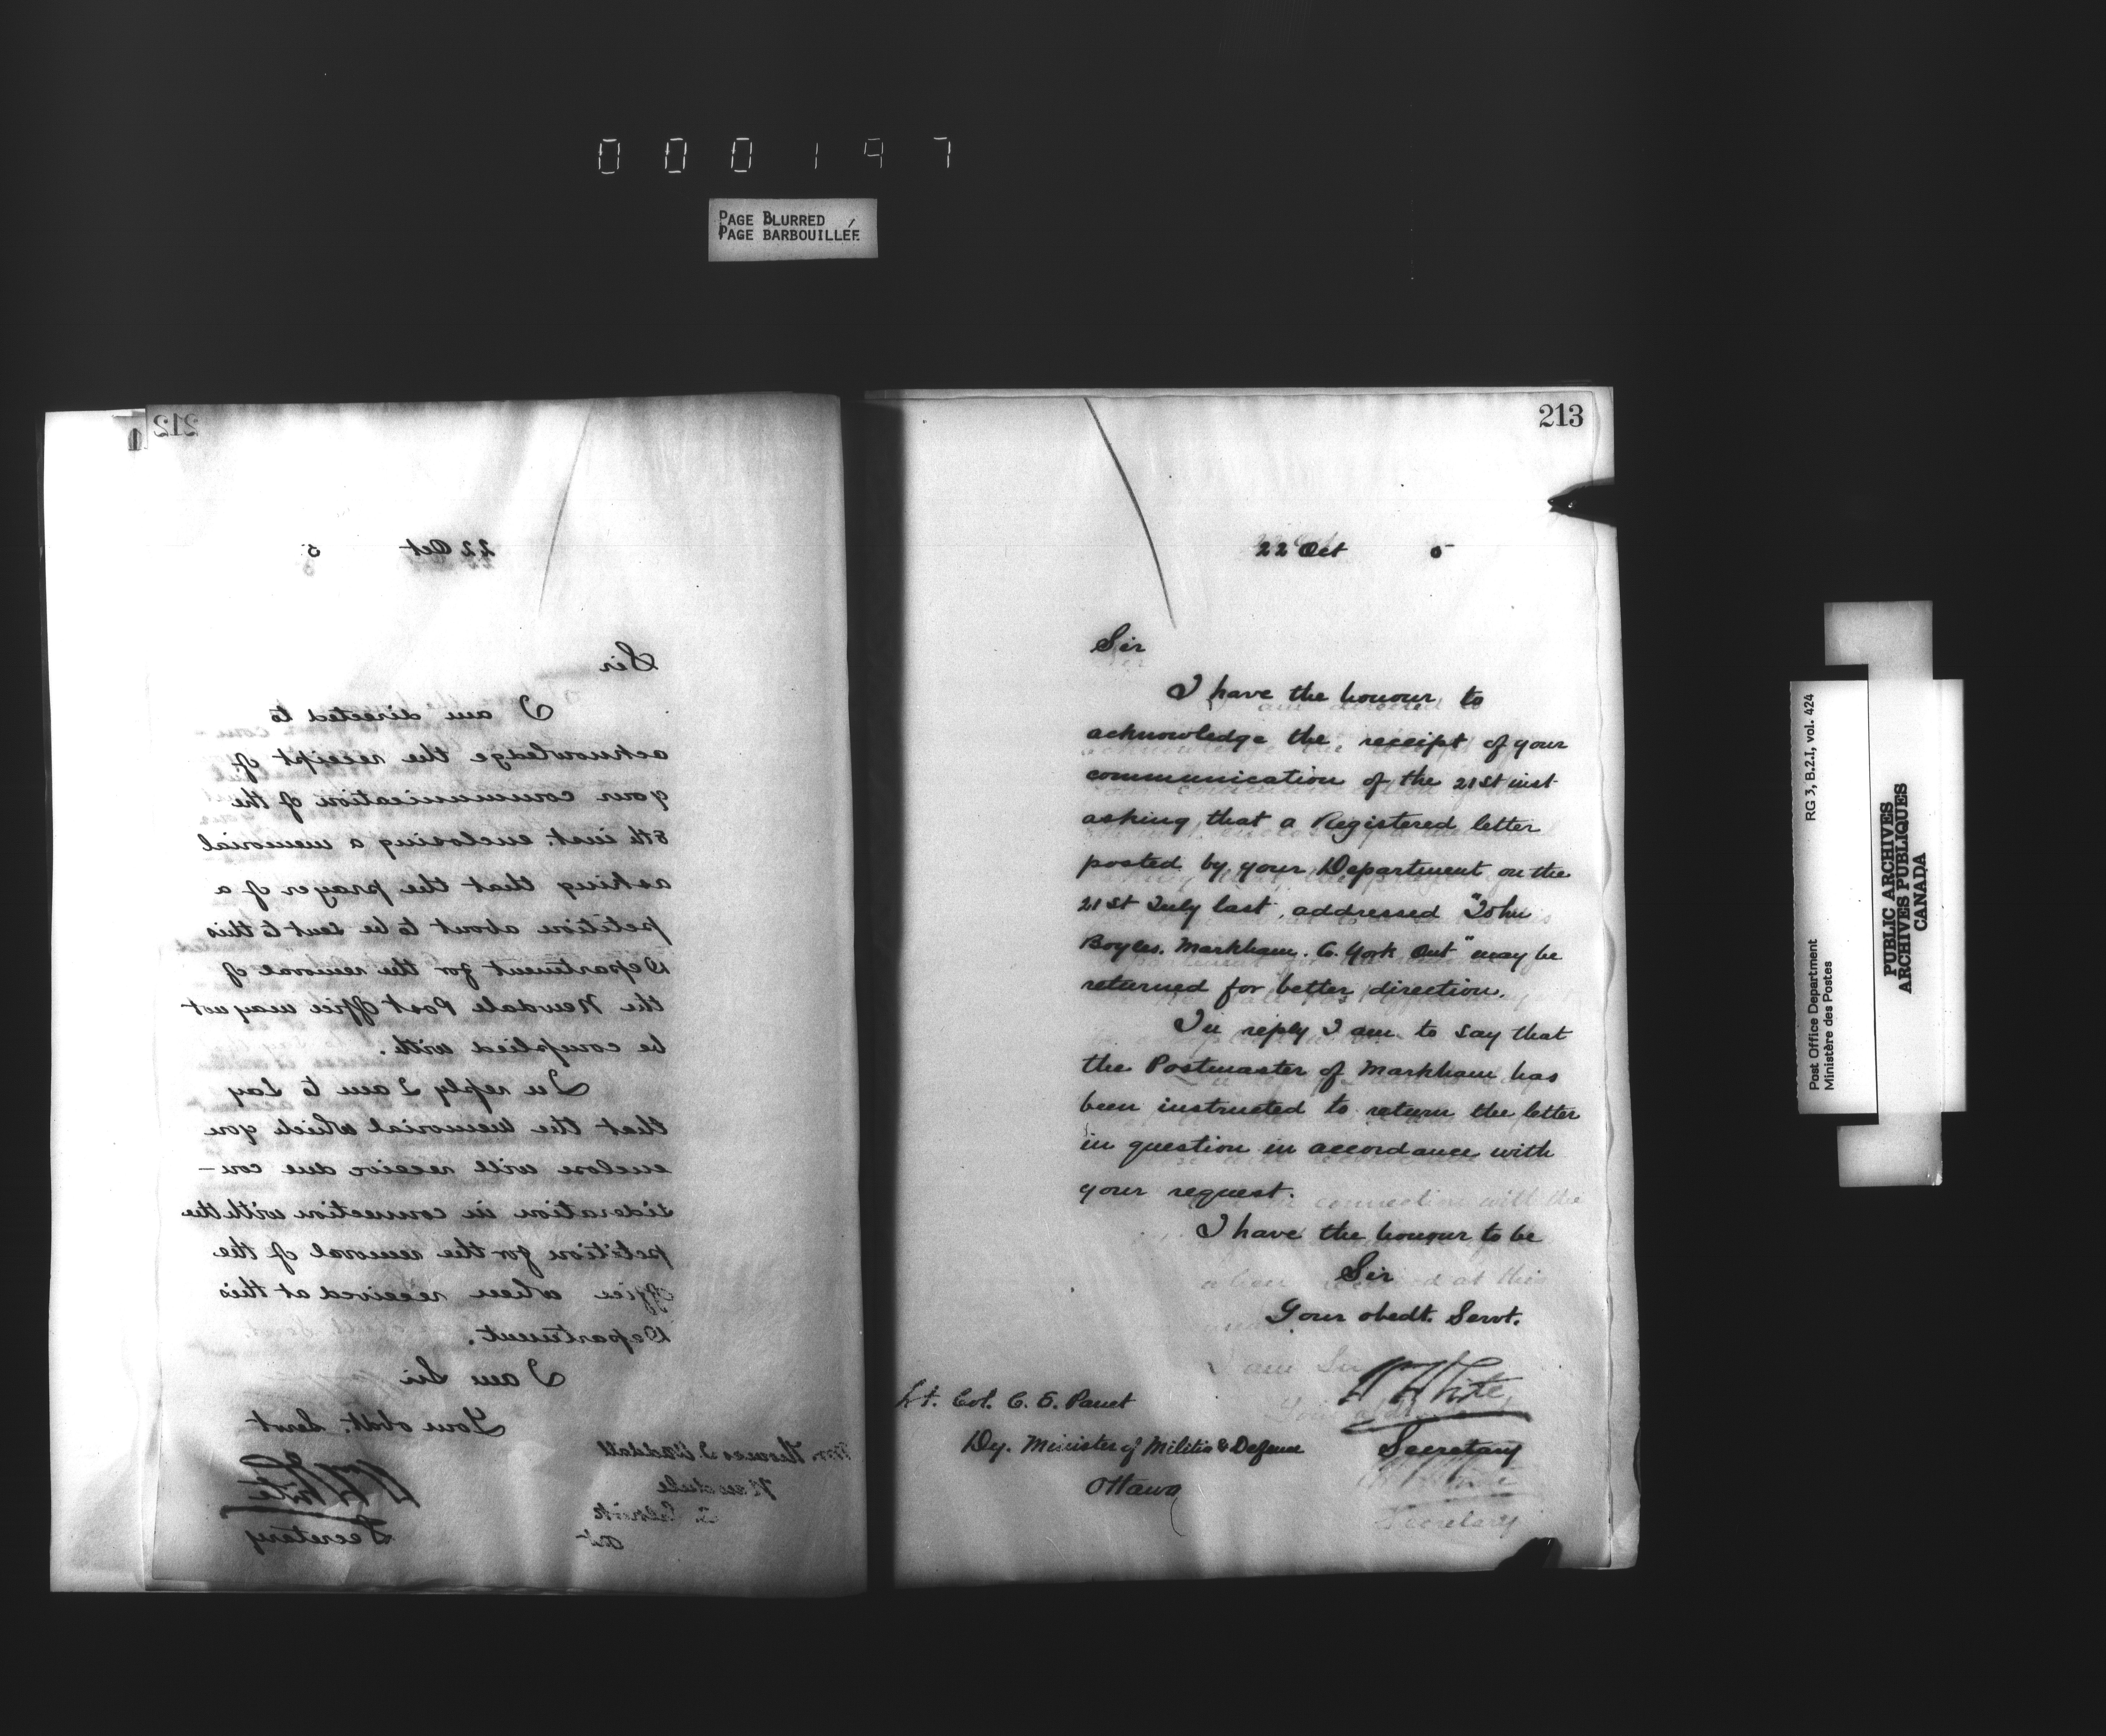 000197
PAGE BLURRED
PAGE BARBOUILLÉE
212
22 Oct 5
Sir
I am directed to
acknowledge the receipt of
your communication of the
8th inst. enclosing a memorial
asking that the prayer of a
petition about to be sent to this
Department for the removal of
the Newdale Post Office may not
be complied with.
In reply I am to say
that the memorial which you
enclose will receive due con-
sideration in connection with the
petition for the removal of the
Office when received at this
Department.
I am Sir
Your obdt. Servt
Wm White
Secretary
Thomas
Newdale
213
22 Oct 5
Sir
I have the honour to
acknowledge the receipt of your
communication of the 21st inst
asking that a Registered letter
posted by your Department on the
21st July last, addressed "John
Boyles. Markham. C. York Ont" may be
returned for better direction.
In reply I am to say that
the Postmaster of Markham has
been instructed to return the letter
in question in accordance with
your request.
I have the honour to be
Sir
Your obedt. Servt.
W White
Secretary
Lt. Col. C. E. Panet
Dy. Minister of Militia & Defence
Ottawa
RG 3, B.2.I, vol. 424
Post Office Department
Ministère des Postes
PUBLIC ARCHIVES
ARCHIVES PUBLIQUES
CANADA